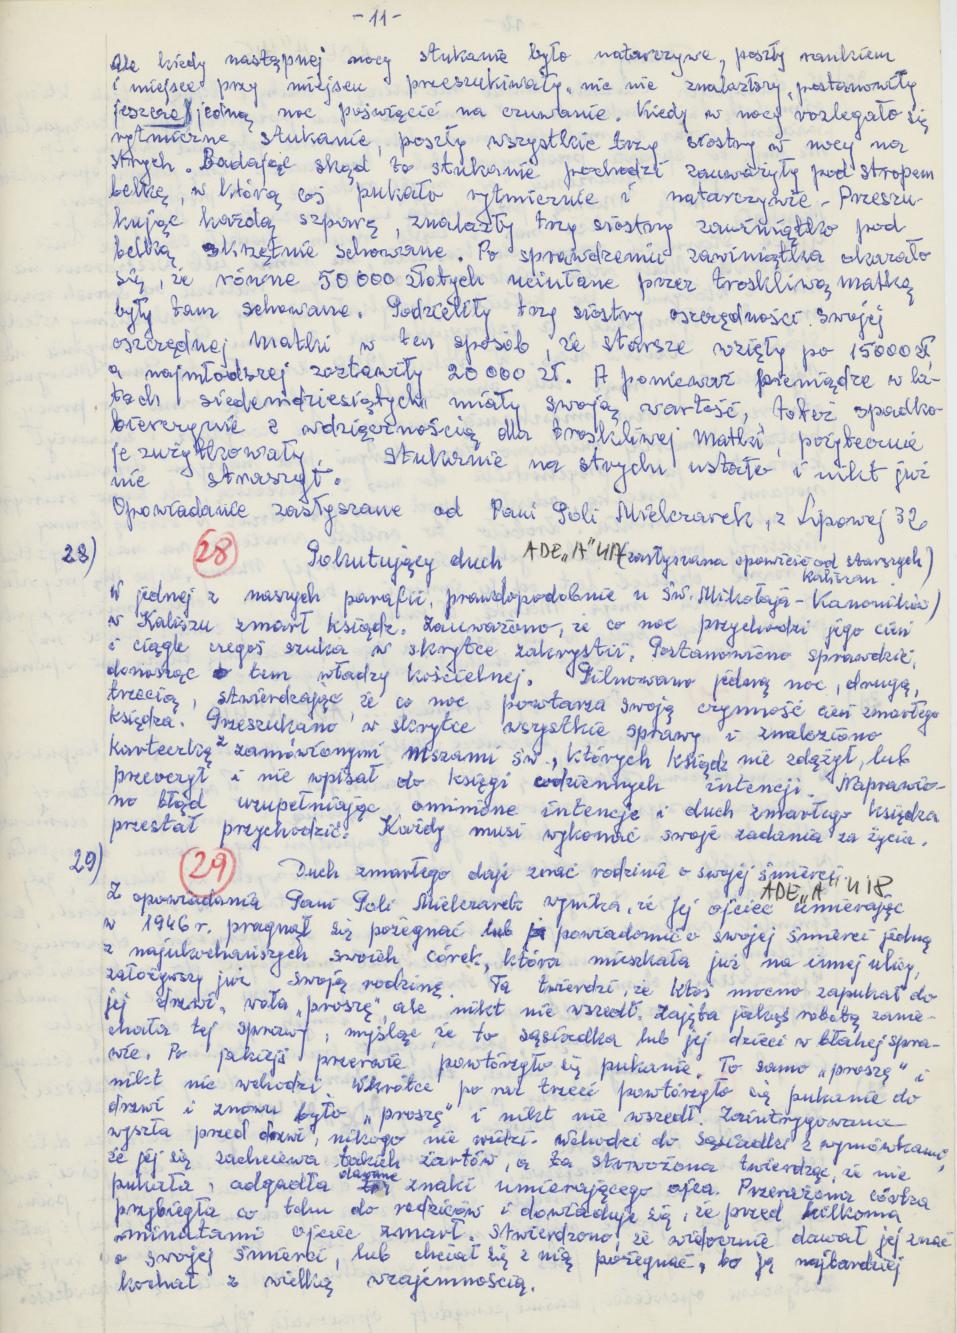 -11-
Ale kiedy następnej nocy stukanie było natarczywe, poszły rankiem
i miejsce przy miejscu przeszukiwały, nic nie znalazłszy, postanowiły
jeszcze jedną noc poświęcić na czuwanie. Kiedy w nocy rozlegało się
rytmiczne stukanie, poszły wszystkie trzy siostry w nocy na
strych. Badając skąd to stukanie pochodzi zauważyły pod stropem
belkę, w którą coś pukało rytmicznie i natarczywie. Przeszu-
kując każdą szparę, znalazły trzy siostry zawiniątko pod
belką skrzętnie schowane. Po sprawdzeniu zawiniątka okazało
się, że równe 50 000 złotych uciułane przez troskliwą matkę
były tam schowane. Podzieliły trzy siostry oszczędności swojej
oszczędnej matki w ten sposób, że starsze wzięły po 15000 zł,
a najmłodszej zostawiły 20 000 zł. A ponieważ pieniądze w la-
tach siedemdziesiątych miały swoją wartość, toteż spadko-
bierczynie z wdzięcznością dla troskliwej matki, pożytecznie
je zużytkowały. Stukanie na strychu ustało i nikt już
nie straszył.
Opowiadanie zasłyszane od Pani Poli Mielczarek, z Lipowej 32
28) 28 Pokutujący duch ADE „A" UAR (zasłyszana opowieść od starszych
kaliszan)
W jednej z naszych parafii, prawdopodobnie u św. Mikołaja - Kanoników)
w Kaliszu zmarł ksiądz. Zauważono, że co noc przychodzi jego cień
i ciągle czegoś szuka w skrytce zakrystii. Postanowiono sprawdzić,
donosząc o tem władzy kościelnej. Pilnowano jedną noc, drugą,
trzecią, stwierdzając, że co noc powtarza swoją czynność cień zmarłego
księdza. Przeszukano w skrytce wszystkie sprawy i znaleziono
karteczkę z zamówionymi mszami św., których ksiądz nie zdążył, lub
przeoczył i nie wpisał do księgi codziennych intencji. Naprawio-
no błąd uzupełniając ominięte intencje i duch zmarłego księdza
przestał przychodzić. Każdy musi wykonać swoje zadania za życia.
29) 29 Duch zmarłego daje znać rodzinie o swojej śmierci.
ADE „A" UAR
Z opowiadania Pani Poli Mielczarek wynika, że Jej ojciec umierając
w 1946 r. pragnął się pożegnać lub powiadomić o swojej śmierci jedną
z najukochańszych swoich córek, która mieszkała już na innej ulicy,
założywszy już swoją rodzinę. Ta twierdzi, że ktoś mocno zapukał do
jej drzwi, woła „proszę", ale nikt nie wszedł. Zajęta jakąś robotą zanie-
chała tej sprawy, myśląc, że to sąsiadka lub jej dzieci w błahej spra-
wie. Po jakiejś przerwie powtórzyło się pukanie. To samo „proszę" i
nikt nie wchodzi. Wkrótce po raz trzeci powtórzyło się pukanie do
drzwi i znowu było „proszę" i nikt nie wszedł. Zaintrygowana
wyszła przed drzwi, nikogo nie widzi. Wchodzi do sąsiadki z wymówkami,
że jej się zachciewa takich żartów, a ta skwaszona twierdząc, że nie
pukała, odgadła dawane znaki umierającego ojca. Przerażona córka
przybiegła co tchu do rodziców i dowiaduje się, że przed kilkoma
minutami ojciec zmarł. Stwierdzono, że widocznie dawał jej znać
o swojej śmierci, lub chciał się z nią pożegnać, bo ją najbardziej
kochał z wielką wzajemnością.